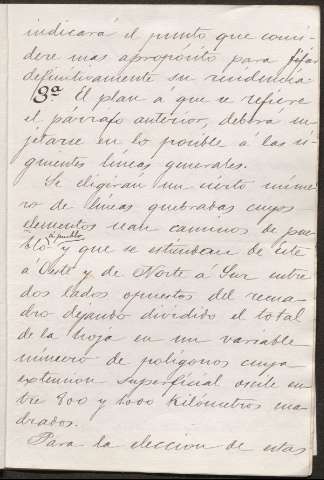 indicará el punto que consi-
dere mas apropósito para fijar
definitivamente su residencia.
8ª El plan á que se refiere
el párrafo anterior, debera su-
jetarse en lo posible á las si-
guientes líneas generales.
Se eligirán un cierto núme-
ro de líneas quebradas cuyos
elementos sean caminos de pue-
blo á pueblo y que se estiendan de Este
á Oeste y de Norte á Sur entre
dos lados opuestos del recua-
dro dejando dividido el total
de la hoja en un variable
número de polígonos cuya
extension superficial oscile en-
tre 800 y 1000 kilómetros cua-
drados.
Para la eleccion de estas